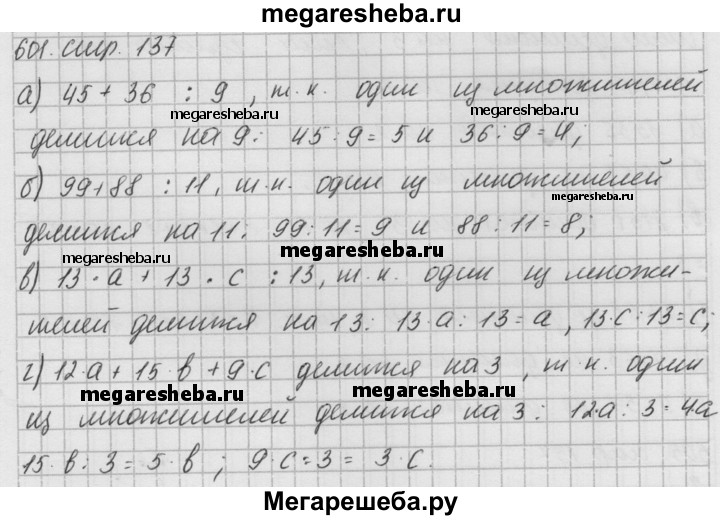 megaresheba.ru
601. стр. 137
а) 45+36 : 9, т.к. один из множителей
megaresheba.ru megaresheba.ru
делится на 9: 45:9=5 и 36:9=4;
б) 99+88 : 11, т.к. один из множителей
megaresheba.ru
делится на 11: 99:11=9 и 88:11=8;
megaresheba.ru megaresheba.ru
в) 13·а + 13·с : 13, т.к. один из множи-
телей делится на 13: 13·а:13=а, 13·с:13=с;
г) 12·а + 15·в + 9·с делится на 3, т.к. один
megaresheba.ru megaresheba.ru
из множителей делится на 3: 12·а:3=4а
15·в:3=5·в; 9·с:3=3·с.
Мегарешеба.ру